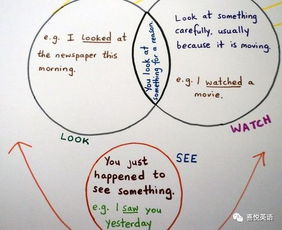 e.g. I looked at
the newspaper this
morning.
You look at
something for a reason
Look at something
carefully, usually
because it is moving.
e.g. I watched a
movie.
LOOK
WATCH
SEE
You just
happened to
see something.
e.g. I saw you
yesterday
喜悦英语